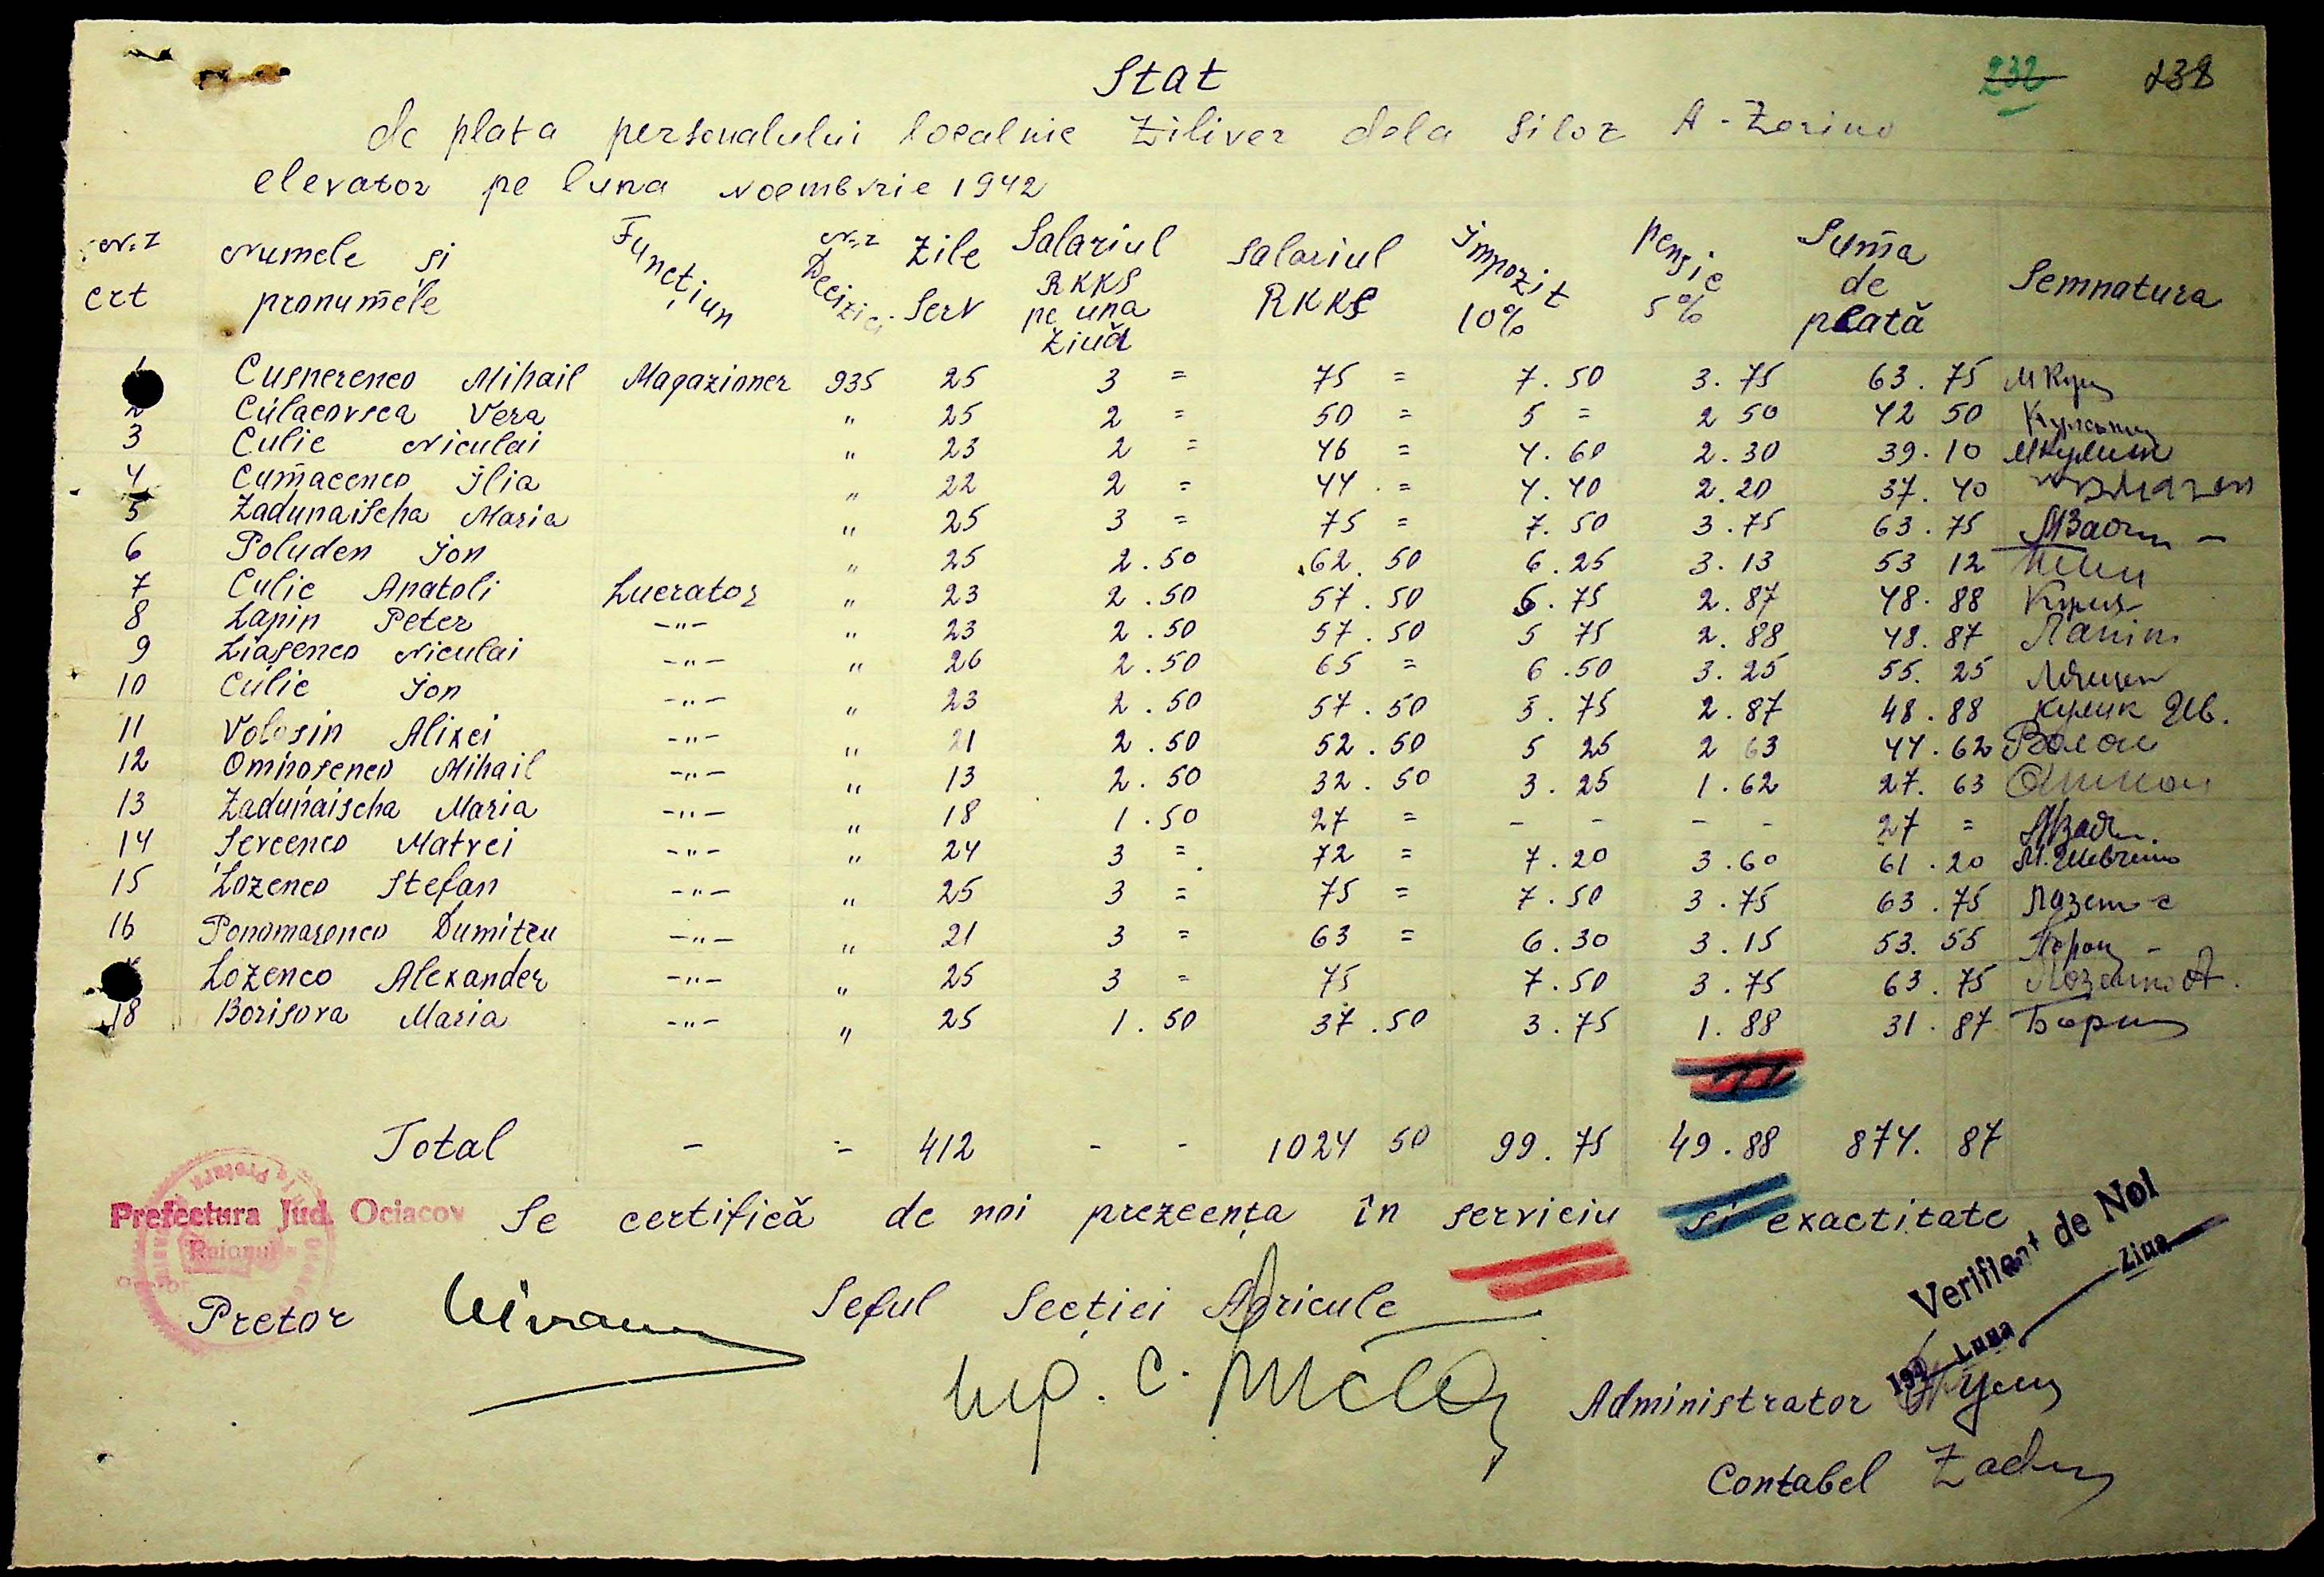 232 238
Stat
de plata personalului localnic Ziliver dela Siloz A-Zorino
elevator pe luna Noembrie 1942
Nr. crt Numele si pronumele Funcțiun Nr. Decizici Zile Serv Salariul RKKS pe una Ziuă Salariul RKKS Impozit 10% pensie 5% Suma de plată Semnatura
1 Cusnerenco Mihail Magazioner 935 25 3 = 75 = 7.50 3.75 63.75
2 Culacovsca Vera " 25 2 = 50 = 5 = 2 50 42 50
3 Culic Niculai " 23 2 = 46 = 4.60 2.30 39.10
4 Cumacenco Ilia " 22 2 = 44 = 4.40 2.20 37.40
5 Zadunaischa Maria " 25 3 = 75 = 7.50 3.75 63.75
6 Poluden Ion " 25 2.50 62.50 6.25 3.13 53 12
7 Culic Anatoli Lucrator " 23 2.50 57.50 5.75 2.87 48.88
8 Lapin Peter -"- " 23 2.50 57.50 5 75 2.88 48.87 Лапин
9 Liasenco Niculai -"- " 26 2.50 65 = 6.50 3.25 55.25
10 Culic Ion -"- " 23 2.50 57.50 5.75 2.87 48.88 Кулик Ив.
11 Volosin Alixei -"- " 21 2.50 52.50 5 25 2 63 44.62 Волос
12 Ominosenco Mihail -"- " 13 2.50 32.50 3.25 1.62 27.63
13 Zadunaischa Maria -"- " 18 1.50 27 = - - - - 27 =
14 Sevcenco Matvei -"- " 24 3 = 72 = 7.20 3.60 61.20 М. Шевченко
15 Lozenco Stefan -"- " 25 3 = 75 = 7.50 3.75 63.75
16 Ponomarenco Dumitru -"- " 21 3 = 63 = 6.30 3.15 53.55
Lozenco Alexander -"- " 25 3 = 75 7.50 3.75 63.75
18 Borisova Maria -"- " 25 1.50 37.50 3.75 1.88 31.87
Total - - 412 - - 1024 50 99.75 49.88 874.87
Prefectura Jud. Ociacov
Raionul
Se certifică de noi prezeența în serviciu si exactitate
Verificat de Noi
194 Luna Ziua
Pretor
Seful Secției Agricule
Ing. C.
Administrator
Contabel Zadun